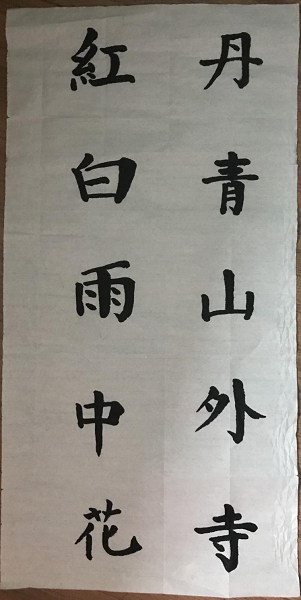 丹青山外寺
紅白雨中花